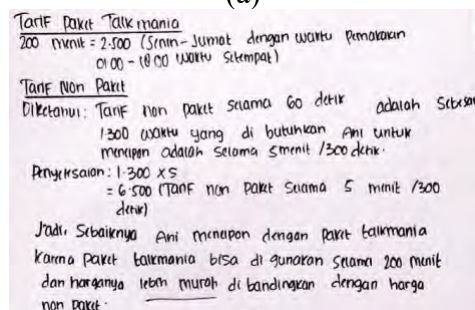 (a)
Tarif Paket Talkmania
200 menit = 2.500 (Senin - Jumat dengan waktu pemakaian
01.00 - 18.00 waktu setempat)
Tarif Non Paket
Diketahui : Tarif non paket selama 60 detik adalah sebesar
1.300 waktu yang di butuhkan Ani untuk
menelpon adalah selama 5 menit /300 detik.
Penyelesaian : 1.300 x 5
= 6.500 (Tarif non paket selama 5 menit /300
detik)
Jadi, Sebaiknya Ani menelpon dengan paket talkmania
Karena paket talkmania bisa di gunakan selama 200 menit
dan harganya lebih murah di bandingkan dengan harga
non paket.